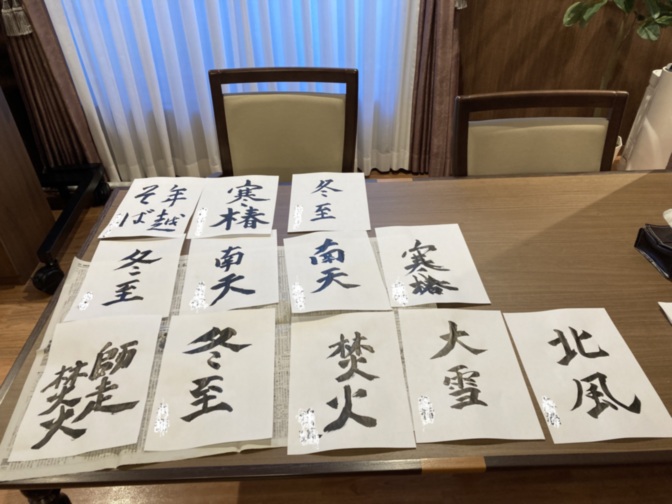 年越
そば
寒椿
冬至
冬至
南天
南天
寒椿
師走
焚火
冬至
焚火
大雪
北風